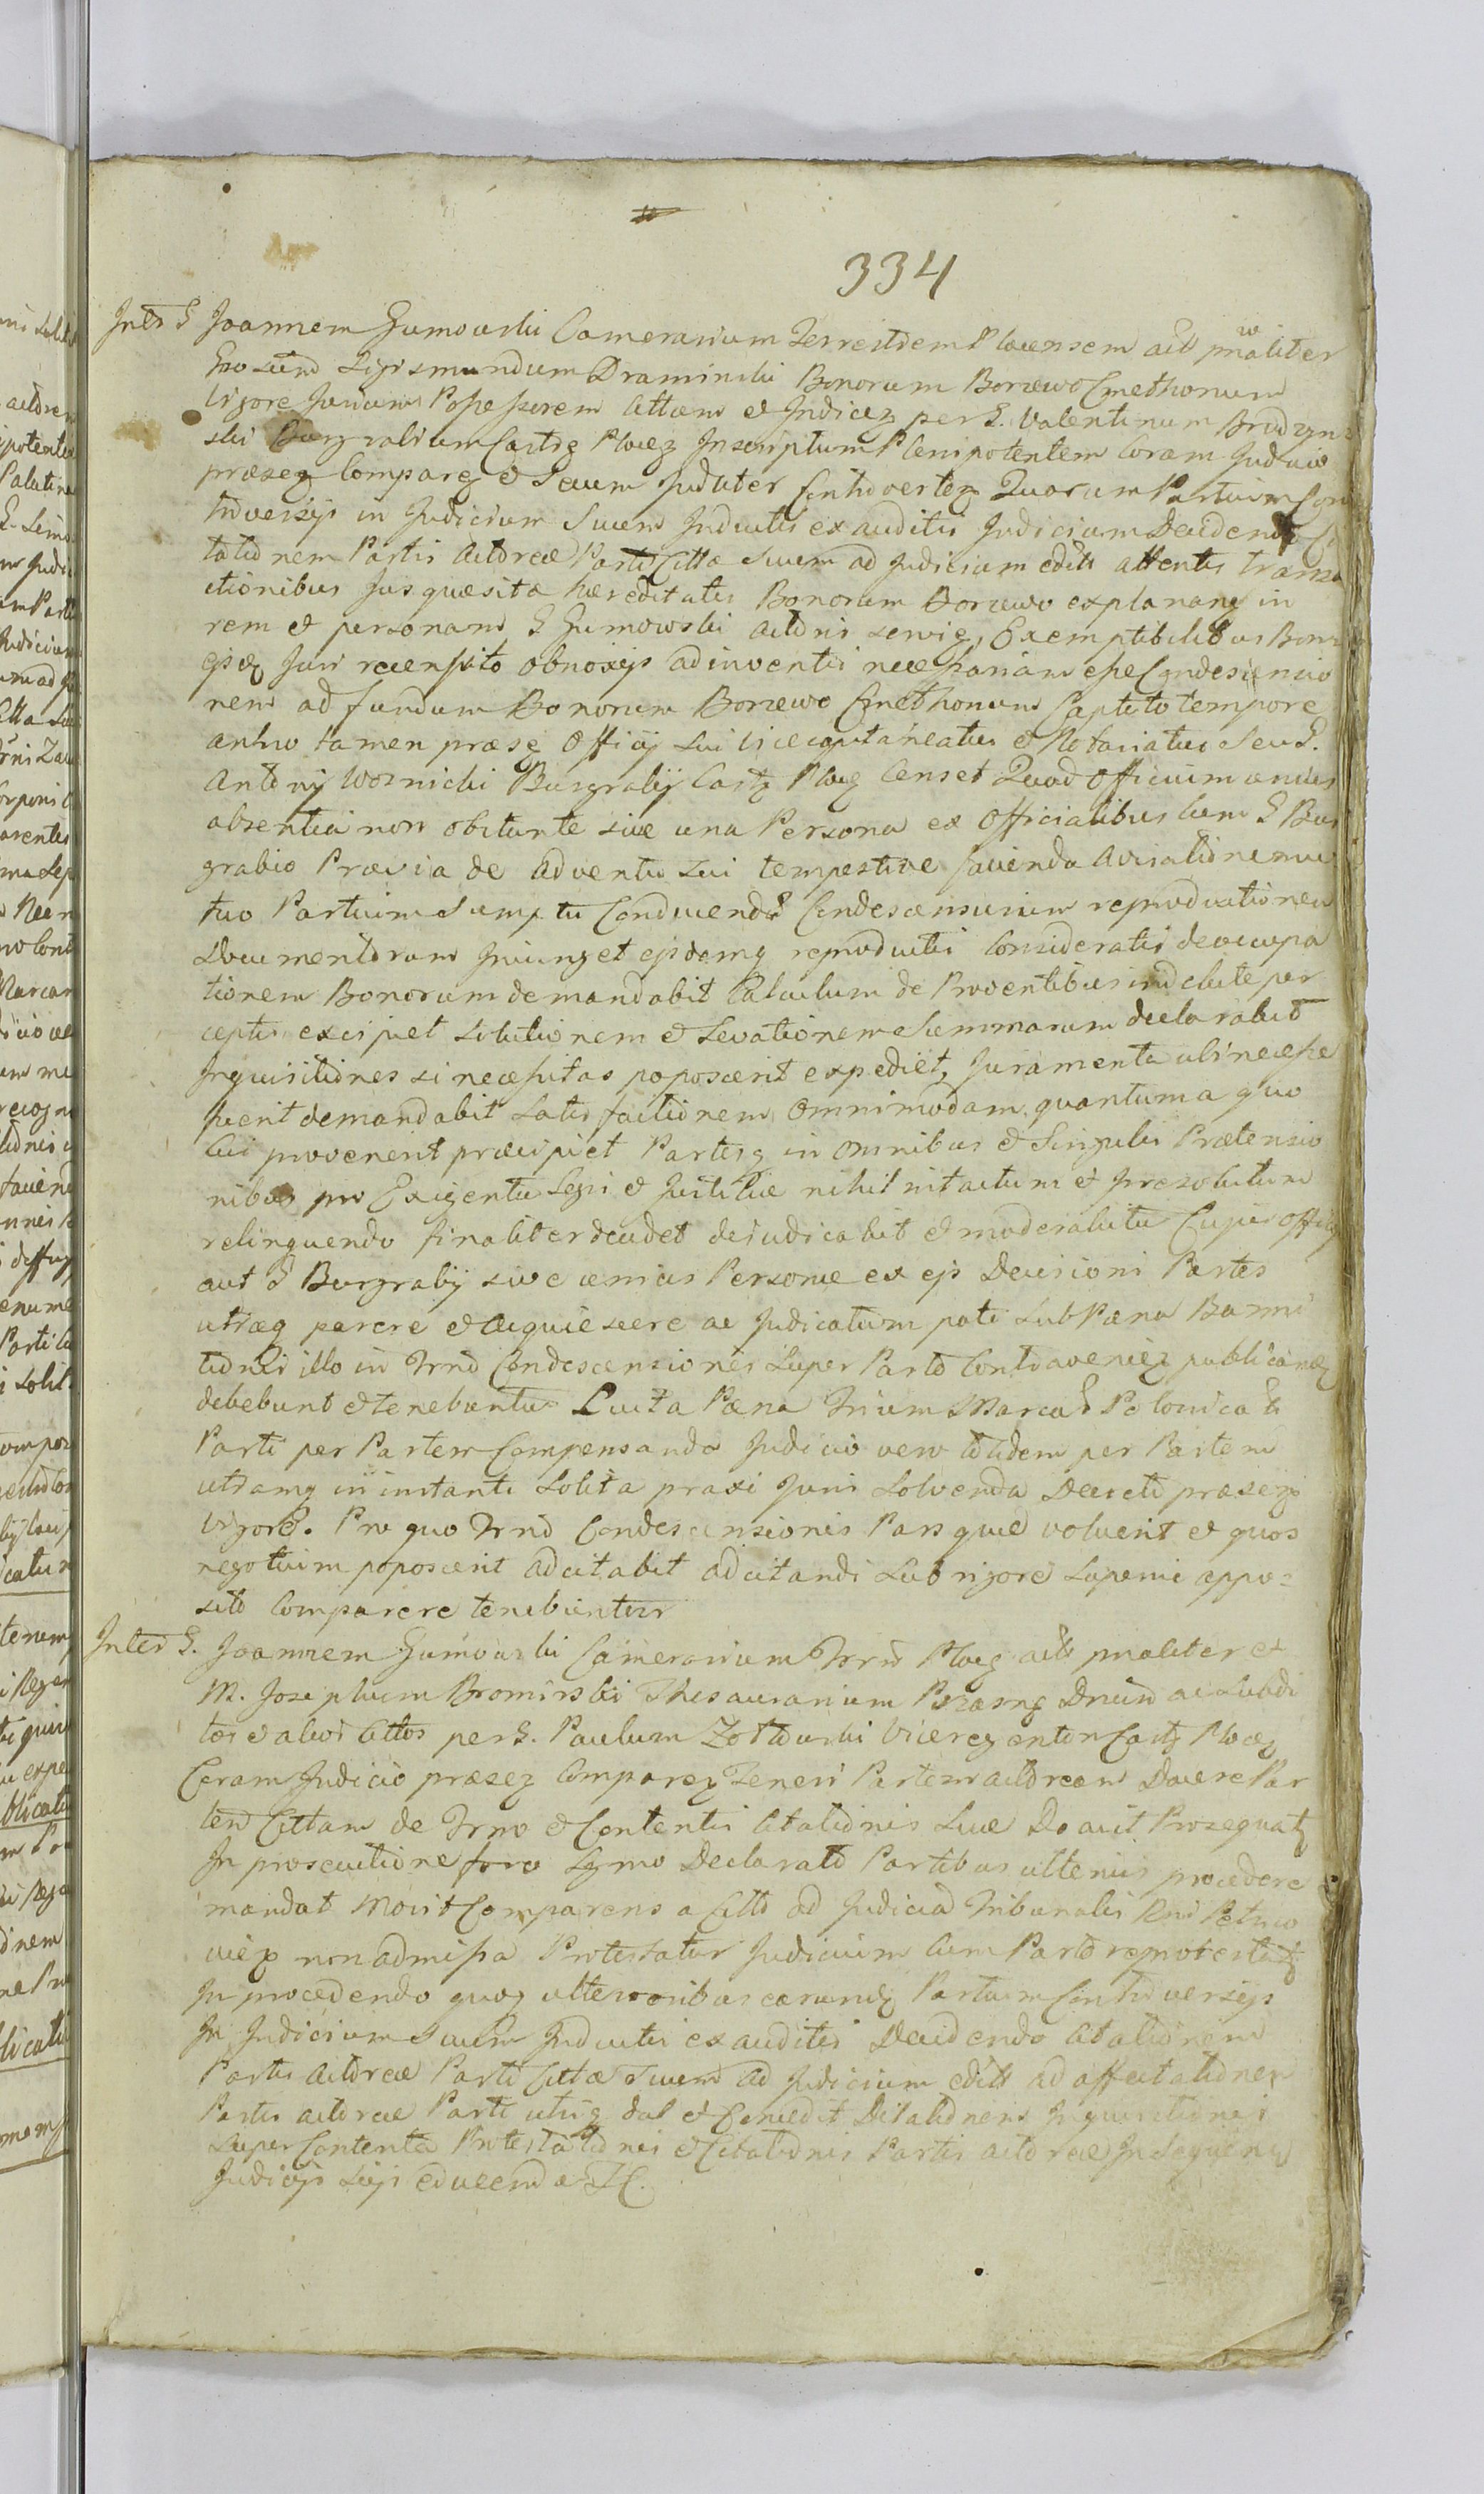 334
Inter G Joannem Gumowski Camerarium Terrestrem Plocensem act pnaliter
Gnosum Sigismundum Draminski Bonorum Borzewo Cmethonum
Vigore Possessorem Cittum et Judicz per G. Valentinum Brudzyn=
ski Burgrabium Castrz Plocz Inscriptum Plenipotentem Coram Judicio
præsez Comparez et Secum Judliter Controvertez Quorum Partium Con
troversijs in Judicium Suum Inductis exauditis Judicium Decidendo Ci
tationem Partis Actoreæ Parti Cittæ Suum ad Judicium edits attentis transa
ctionibus Jus quæsitæ hæreditatis Bonorum Borzewo explananz in
rem et personam G Gumowski Actoris servig, Exemptibilibus Bonis
Juri recensito obnoxijs adinventis necessariam esse Condescensio
nem ad fundum Bonorum Borzewo Cmethonum Captato tempore
tamen præse Officij sui Vicecapitaneatus et Notariatus Seu G.
Antonij Woznicki Burgrabij Castz Plocz Censet Quod Officium unius
absentia non obstante sive una Persona ex Officialibus Cum G Bur
grabio Prævia de Adventu sui tempestive facienda Avisatione mu
tuo Partium Sumptu Conducenda Condescensurum reproductionem
Documentorum Injunget ejsdemq reproductis Consideratis de occupa
tionem Bonorum demandabit Calculum de Proventibus indebite per
ceptis excipiet Solutionem et Levationem Summarum declarabit
Inquisitiones si necessitas poposcerit expediet, Juramenta ubi necesse
fuerit demandabit Satisfactionem Omnimodam quantum a quo
Cui provenerit præcipiet Partesq in Omnibus et Singulis Prætensio
nibus pro Exigentia Legis et Justitiæ nihil intactum et Irresolutum
relinquendo finaliter decidet dejudicabit et moderabitur Cujus Officij
aut G Burgrabij sive unius Personæ ex ejs Decisioni Partes
utræq parere et Acquiescere ac Judicatum pati sub Pæna Banni
tionis illo in Trno Condescensionis Super Parte Contraveniez publicanz
debebunt et tenebuntur Luita Pæna Trium Marcar Polonical
Parti per Partem Compensanda Judicio vero totidem per Partem
utramq in instanti Solita praxi Juris Solvenda Decreti præsez
Vigore. Pro quo Trno Condescensionis Pars quæ voluerit et quos
negotium poposcerit adcitabit adcitandi Sub rigore Superius appo=
sito Comparere tenebuntur
Inter G. Joannem Gumowski Camerarium Trrm Plocz act pnaliter et
M. Josephum Bromirski Thesaurarium Przasnz Dnum ac Subdi
tos et alios Cittos per G. Paulum Zołtowski Viceregentem Castz Plocz
Coram Judicio præsez Comparez Teneri Partem Actoream Docere Par
tem Cittam de Trno et Contentis Citationis Suæ Docuit Prosequatz
In prosecutione foro Lgmo Declarato Partibus ulterius procedere
mandat Movit Comparens a Citto ad Judicia Tribunalis Rni Petrico
viez non admissa Protestatur Judicium Cum Parte reprotestatz
In procedendo quoq ulterioribus earundz Partium Controversijs
In Judicium Suum Inductis exauditis Decidendo Citationem
Partis Actoreæ Parti Cittæ Suum ad Judicium edits ad affectationem
Partis actoreæ Parti utriq dat et Concedit Dilationem Inquisitionis
Super Contenta Protestationis et Citationis Partis Actoreæ In Sequenz
Judicijs Suijs educenda Fl.